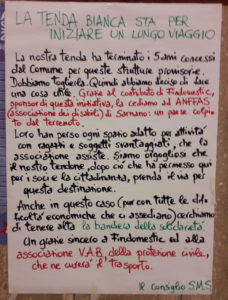 LA TENDA BIANCA STA PER
INIZIARE UN LUNGO VIAGGIO
La nostra tenda ha terminato i 5 anni concessi
dal Comune per queste strutture provvisorie.
Dobbiamo toglierla. Quindi abbiamo deciso di dare
una cosa utile. Grazie al contributo di Findomestic,
sponsor di questa iniziativa, la cediamo ad ANFFAS
(associazione dei disabili) di Sarnano: un paese colpi-
to dal terremoto.
Loro han perso ogni spazio adatto per attività
con ragazzi e soggetti svantaggiati, che la
associazione assiste. Siamo orgogliosi che
il nostro tendone, dopo ciò che ha permesso qui
per i soci e la cittadinanza, prenda il via per
questa destinazione.
Anche in questo caso (pur con tutte le diffi-
coltà economiche che ci assediano) cerchiamo
di tenere alta la bandiera della solidarietà.
Un grazie sincero a Findomestic ed alla
associazione V.A.B. della protezione civile,
che ne curerà il trasporto.
Il Consiglio S.M.S.